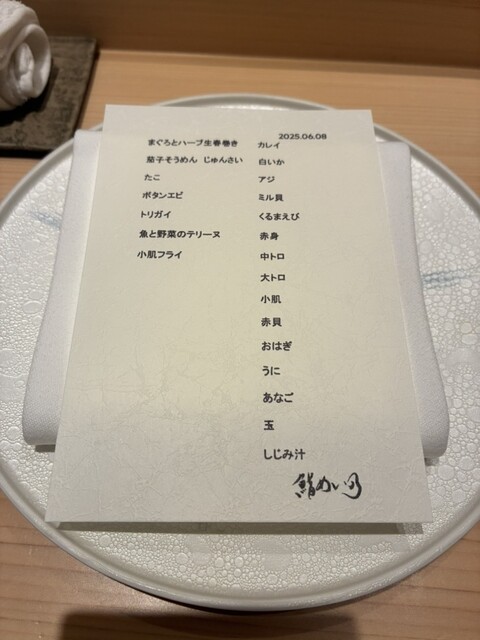 2025.06.08
まぐろとハーブ生春巻き
茄子そうめん じゅんさい
たこ
ボタンエビ
トリガイ
魚と野菜のテリーヌ
小肌フライ
カレイ
白いか
アジ
ミル貝
くるまえび
赤身
中トロ
大トロ
小肌
赤貝
おはぎ
うに
あなご
玉
しじみ汁